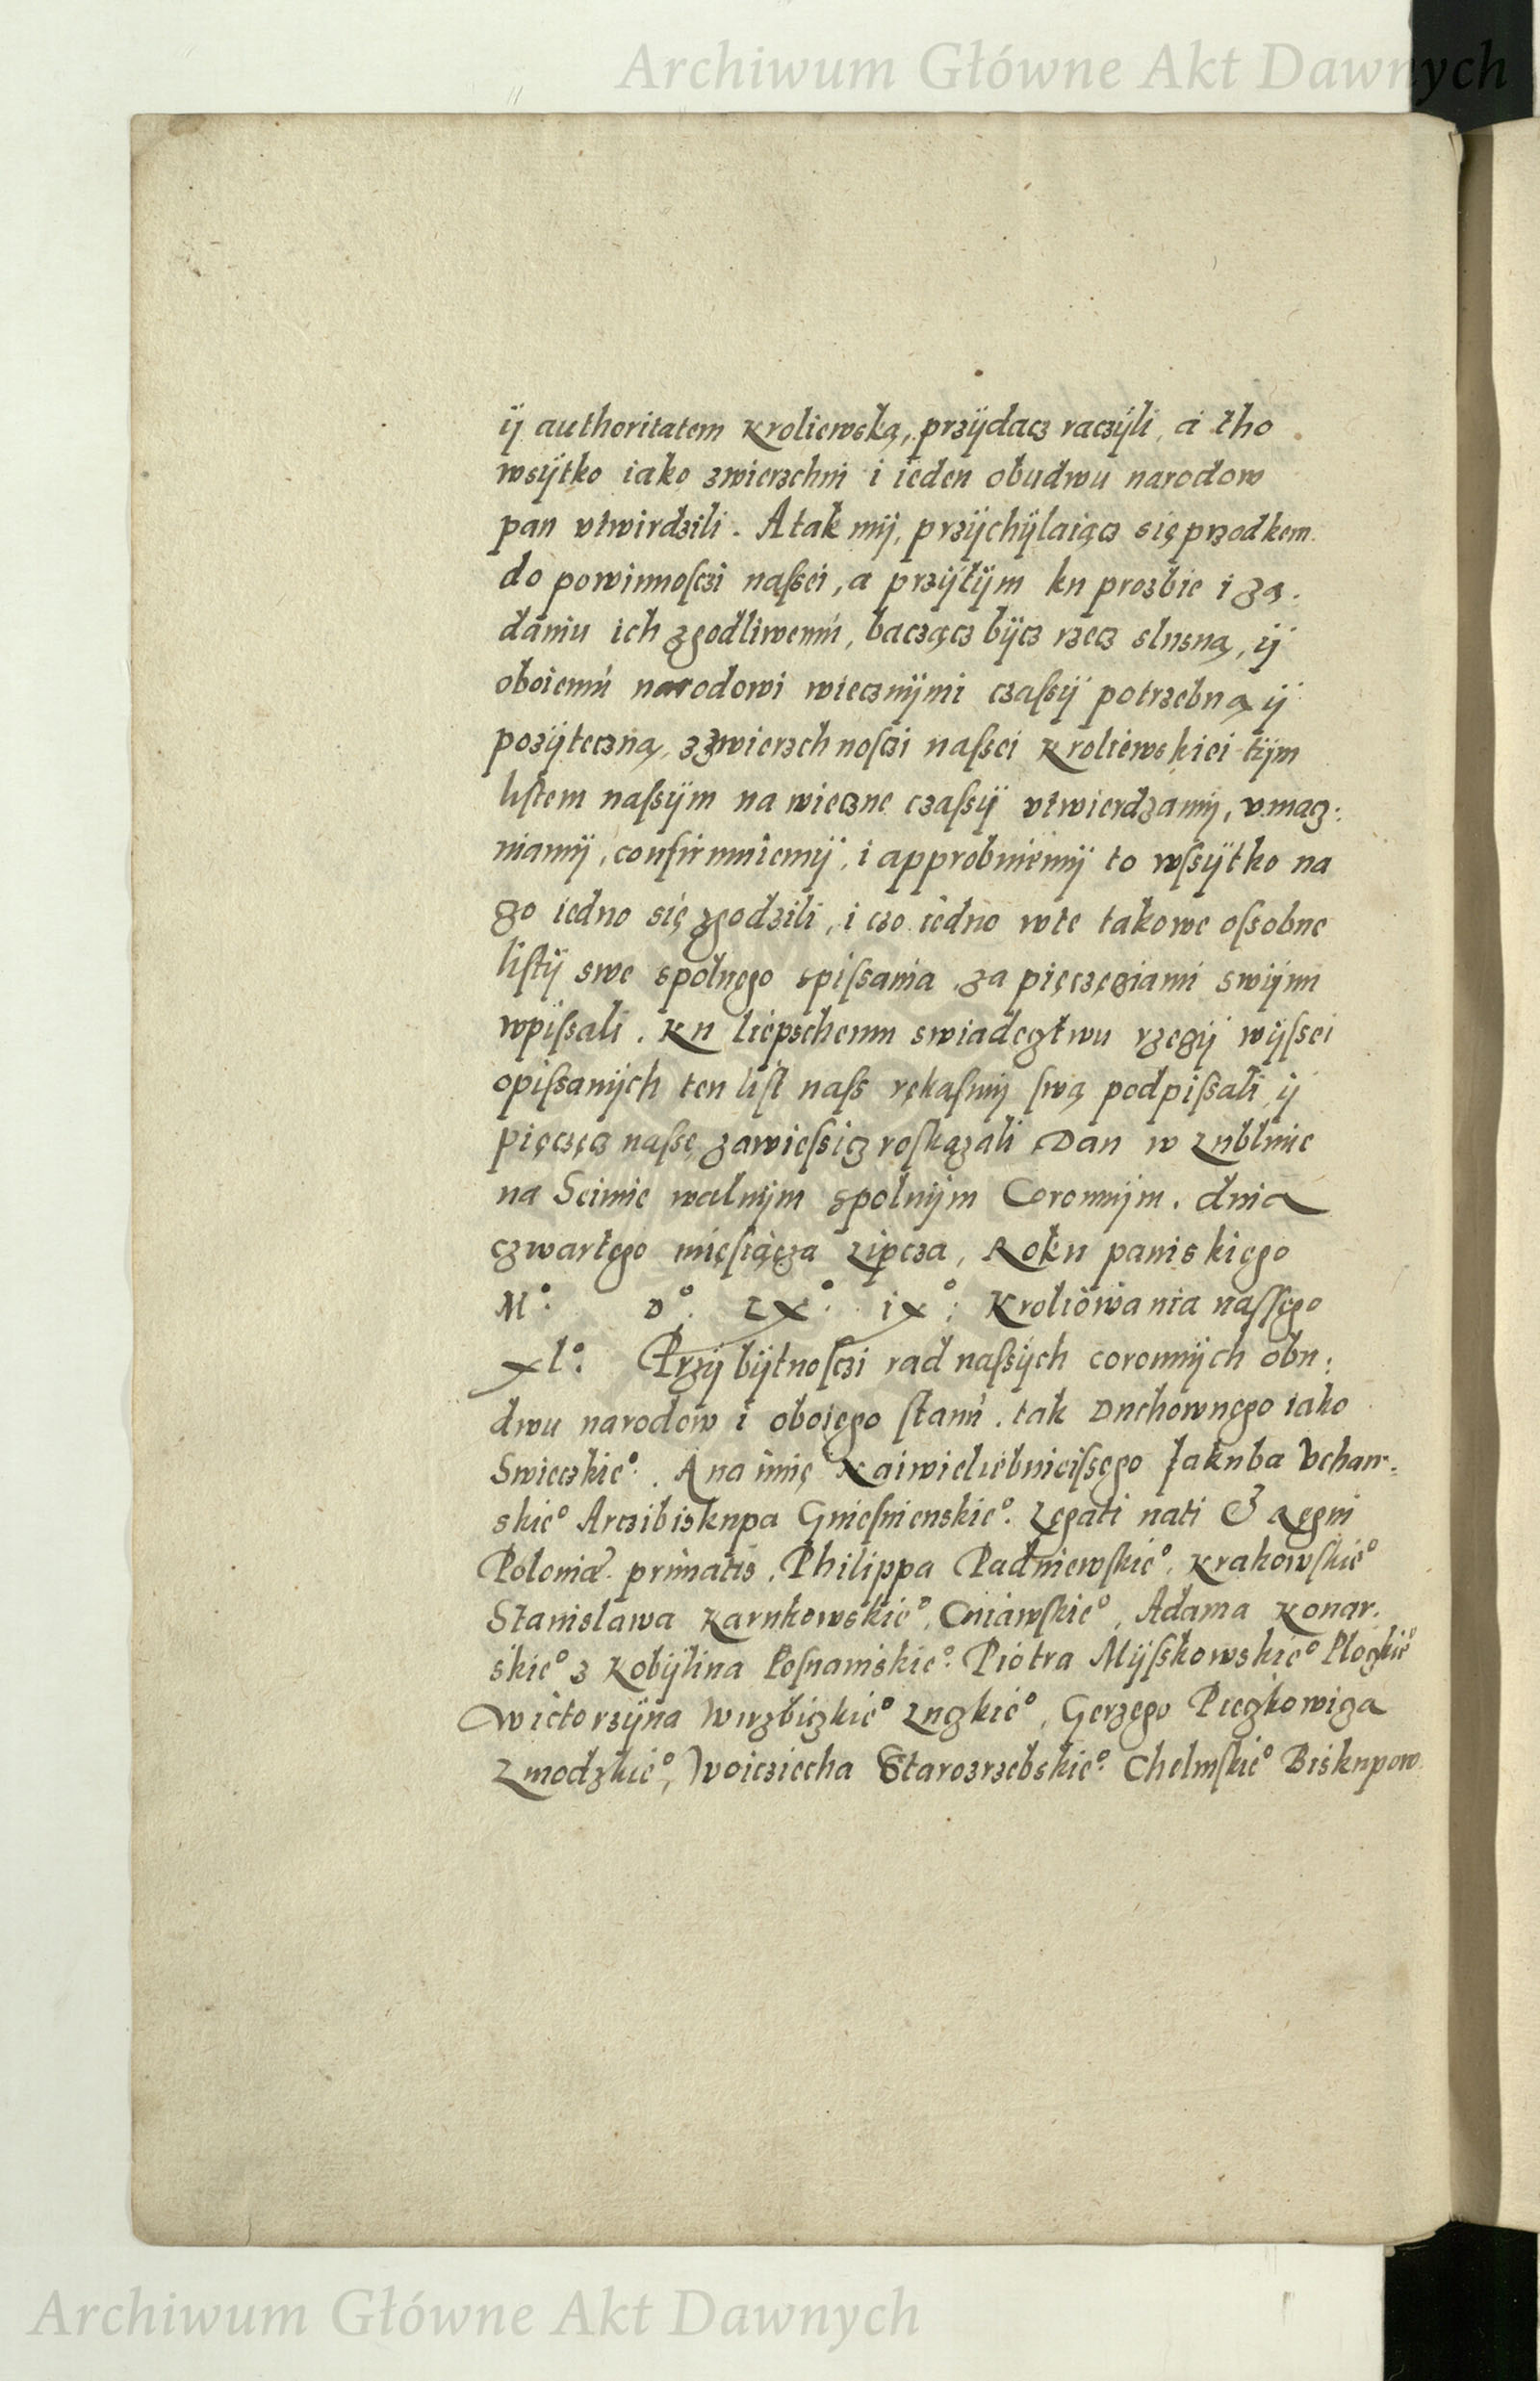 Archiwum Główne Akt Dawnych
ij authoritatem kroliewską, prziydacz raczyli, a tho
wsÿtko iako zwierzchni i ieden obudwu narodow
pan vtwirdzili. A tak mÿ, przÿchÿlaiącz się przodkem
do powinnosczi naſsei, a przÿtÿm ku prozbie i zą.
daniu ich zgodliwemu, bacząc bÿcz rzecz slusną, ÿ
oboiemu narodowi wiecznÿmi czaſsÿ potrzebną ÿ
pozÿteczną, z zwierzchnosczi naſsei kroliewskiei tÿm
listem naſsÿm na wieczne czaſsÿ vtwierdzamÿ, vmacz:
niamÿ, confirmuiemÿ, i approbuiemÿ to wſsÿtko na
czo iedno się zgodzili, i czo iedno w te takowe oſsobne
listÿ swe spolnego spiſsania, za pięczęciami swÿmi
wpiſsali. Ku liepschemu swiadecztwu rzeczÿ wÿſsei
opiſsanÿch ten list naſs rękaſmÿ swą podpiſsali ÿ
pięczęcz naſsę zawieſsicz roskazali Dan w Lublinie
na Seimie walnÿm spolnÿm Coronnÿm. dnia
czwartego mięsiącza Lipcza, Roku paniskiego
M°: D°. LX°. ix°: Kroliowania naſſego
xl°: Przÿ bÿtnosczi rad naſsÿch coronnÿch obu:
dwu narodow i oboiego stanu. tak Duchownego iako
Swieczkie°. A na imię Naiwieliebnieiſsego Jakuba Vchan:
skie° Arczibiskupa Gnieſnienskie°. Legati nati & Regni
Poloniæ primatis. Philippa Padniewskie°. Krakowskie°
Stanislawa Karnkowskie°, Cuiawskie°, Adama Konar.
skie° z Kobÿlina Poſnaniskie°. Piotra Mÿſskowskie° Ploczkie°
Wictorzÿna Wirzbiczkie° Luczkie°, Gerzego Pieczkowicza
Zmodzkie°, Woicziecha Starozrzebskie°. Chelmskie° Biskupow
Archiwum Główne Akt Dawnych